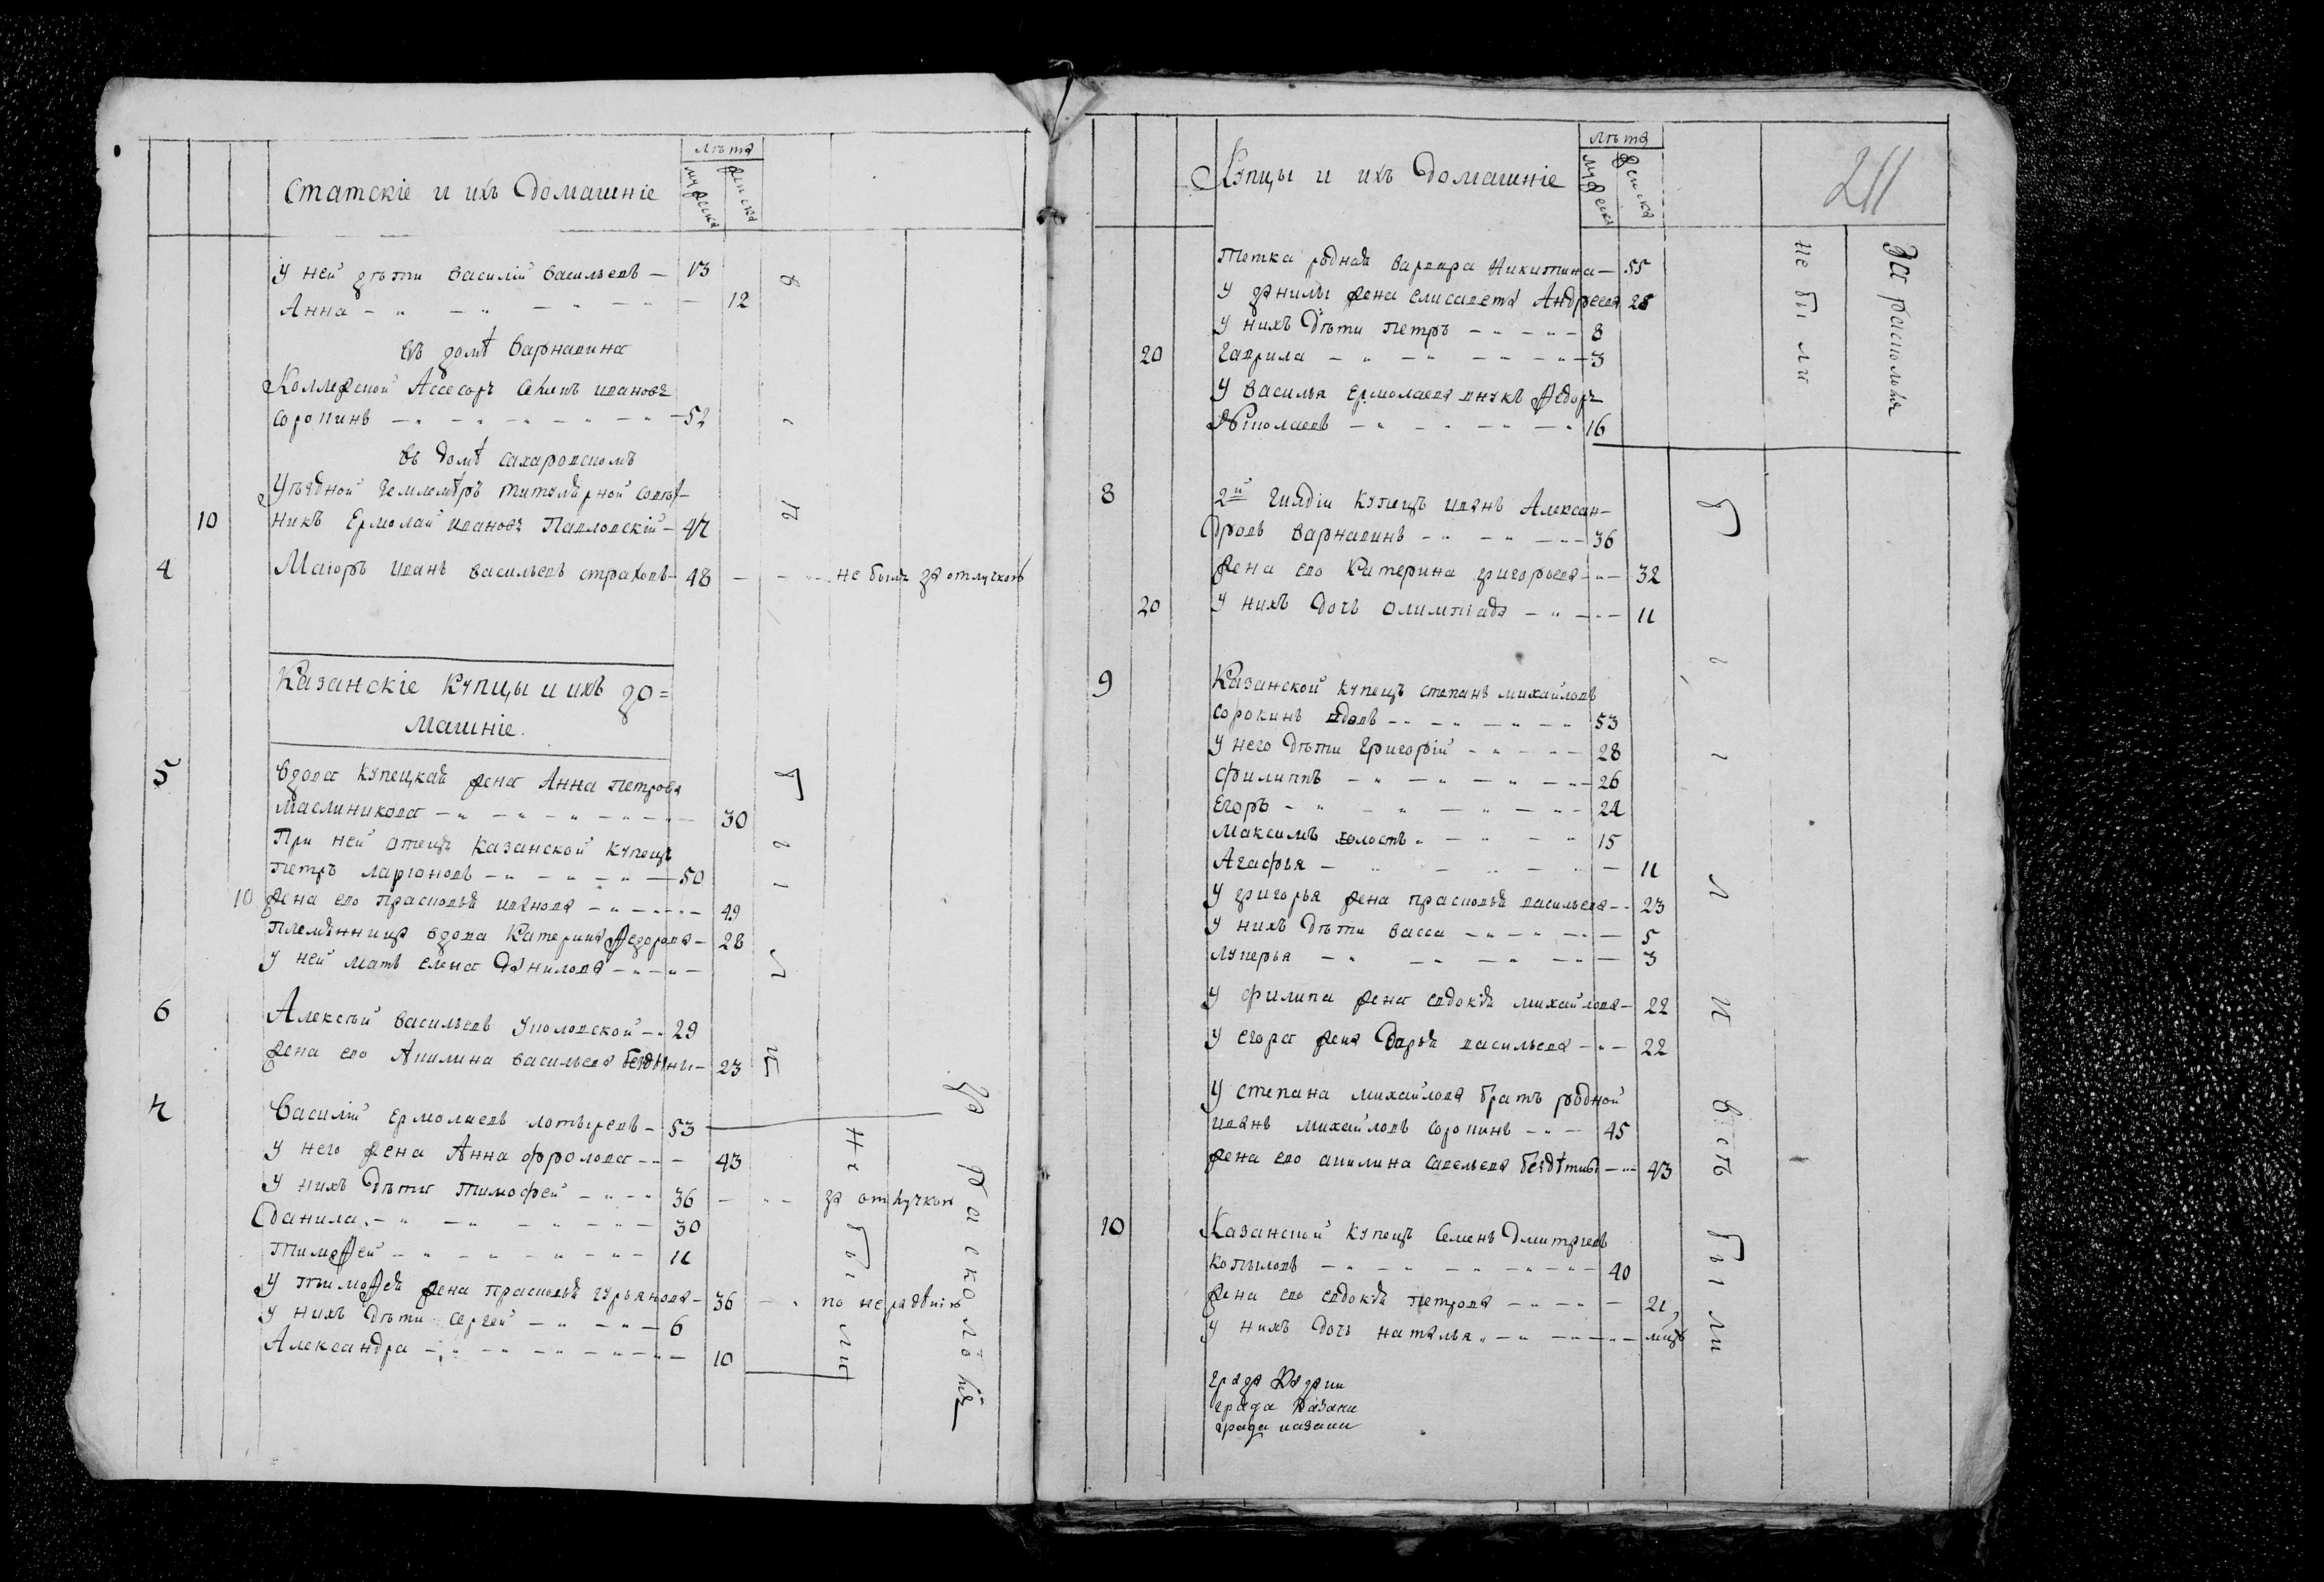 лѣта
Статскіе и ихъ домашніе
мужеска
женска
У ней дѣти Василій Васильевъ — 13
Анна — 12
въ домѣ Варнавина
Коллежской Ассесоръ Ивановъ
Сорокинъ — 52
въ домѣ Сахаровскомъ
Уѣздной Землемѣръ Титулярной Совѣт-
10 никъ Ермолай Ивановъ Павловскій — 47
4 Маіоръ Иванъ Васильевъ Страховъ — 48 — не были за отлучкою
Казанскіе Купцы и ихъ до=
машніе.
5 Вдова купецкая жена Анна Петрова
Маслиникова — 30
При ней отецъ казанской купецъ
Петръ Ларіоновъ — 50
10 жена его Прасковья Иванова — 49
Племянница вдова Катерина Федорова — 28
У ней мать Елена Данилова —
6 Алексѣй Васильевъ Уполовской — 29
жена его Акилина Васильева бездѣтны — 23
7 Василій Ермолаевъ Лотыревъ — 53
У него жена Анна Фролова — 43
У нихъ дѣти Тимофей — 36 — за отлучкою
Данила — 30
Тимофей — 11
У Тимофея жена Прасковья Гурьянова — 36 — по нерадѣнію
У нихъ дѣти Сергей — 6
Александра — 10
не были
за расколомъ
лѣта
Купцы и ихъ домашніе
мужеска
женска
211
Тетка родная Варвара Никитина — 55
У Данилы жена Елисавета Андреева 28
У нихъ дѣти Петръ — 8
20 Гаврила — 3
У Василья Ермолаева внукъ Федоръ
Николаевъ — 16
не были
За расколомъ
8 2й Гилдіи купецъ Иванъ Алексан-
дровъ Варнавинъ — 36
жена его Катерина Григорьева — 32
20 У нихъ дочь Олимпіада — 11
9 Казанской купецъ Степанъ Михайловъ
Сорокинъ вдовъ — 53
У него дѣти Григорій — 28
Филиппъ — 26
Егоръ — 24
Максимъ холостъ — 15
Агафья — 11
У Григорья жена Прасковья Васильева — 23
У нихъ дѣти Васса — 5
Лукерья — 3
У Филипа жена Евдокія Михайлова — 22
У Егора жена Дарья Васильева — 22
У Степана Михайлова братъ родной
Иванъ Михайловъ Сорокинъ — 45
жена его Акилина Савельева бездѣтны — 43
10 Казанской купецъ Семенъ Дмитріевъ
Копыловъ — 40
жена его Евдокія Петрова — 21
У нихъ дочь Наталья —
были
града Казани
града Казани
града казани